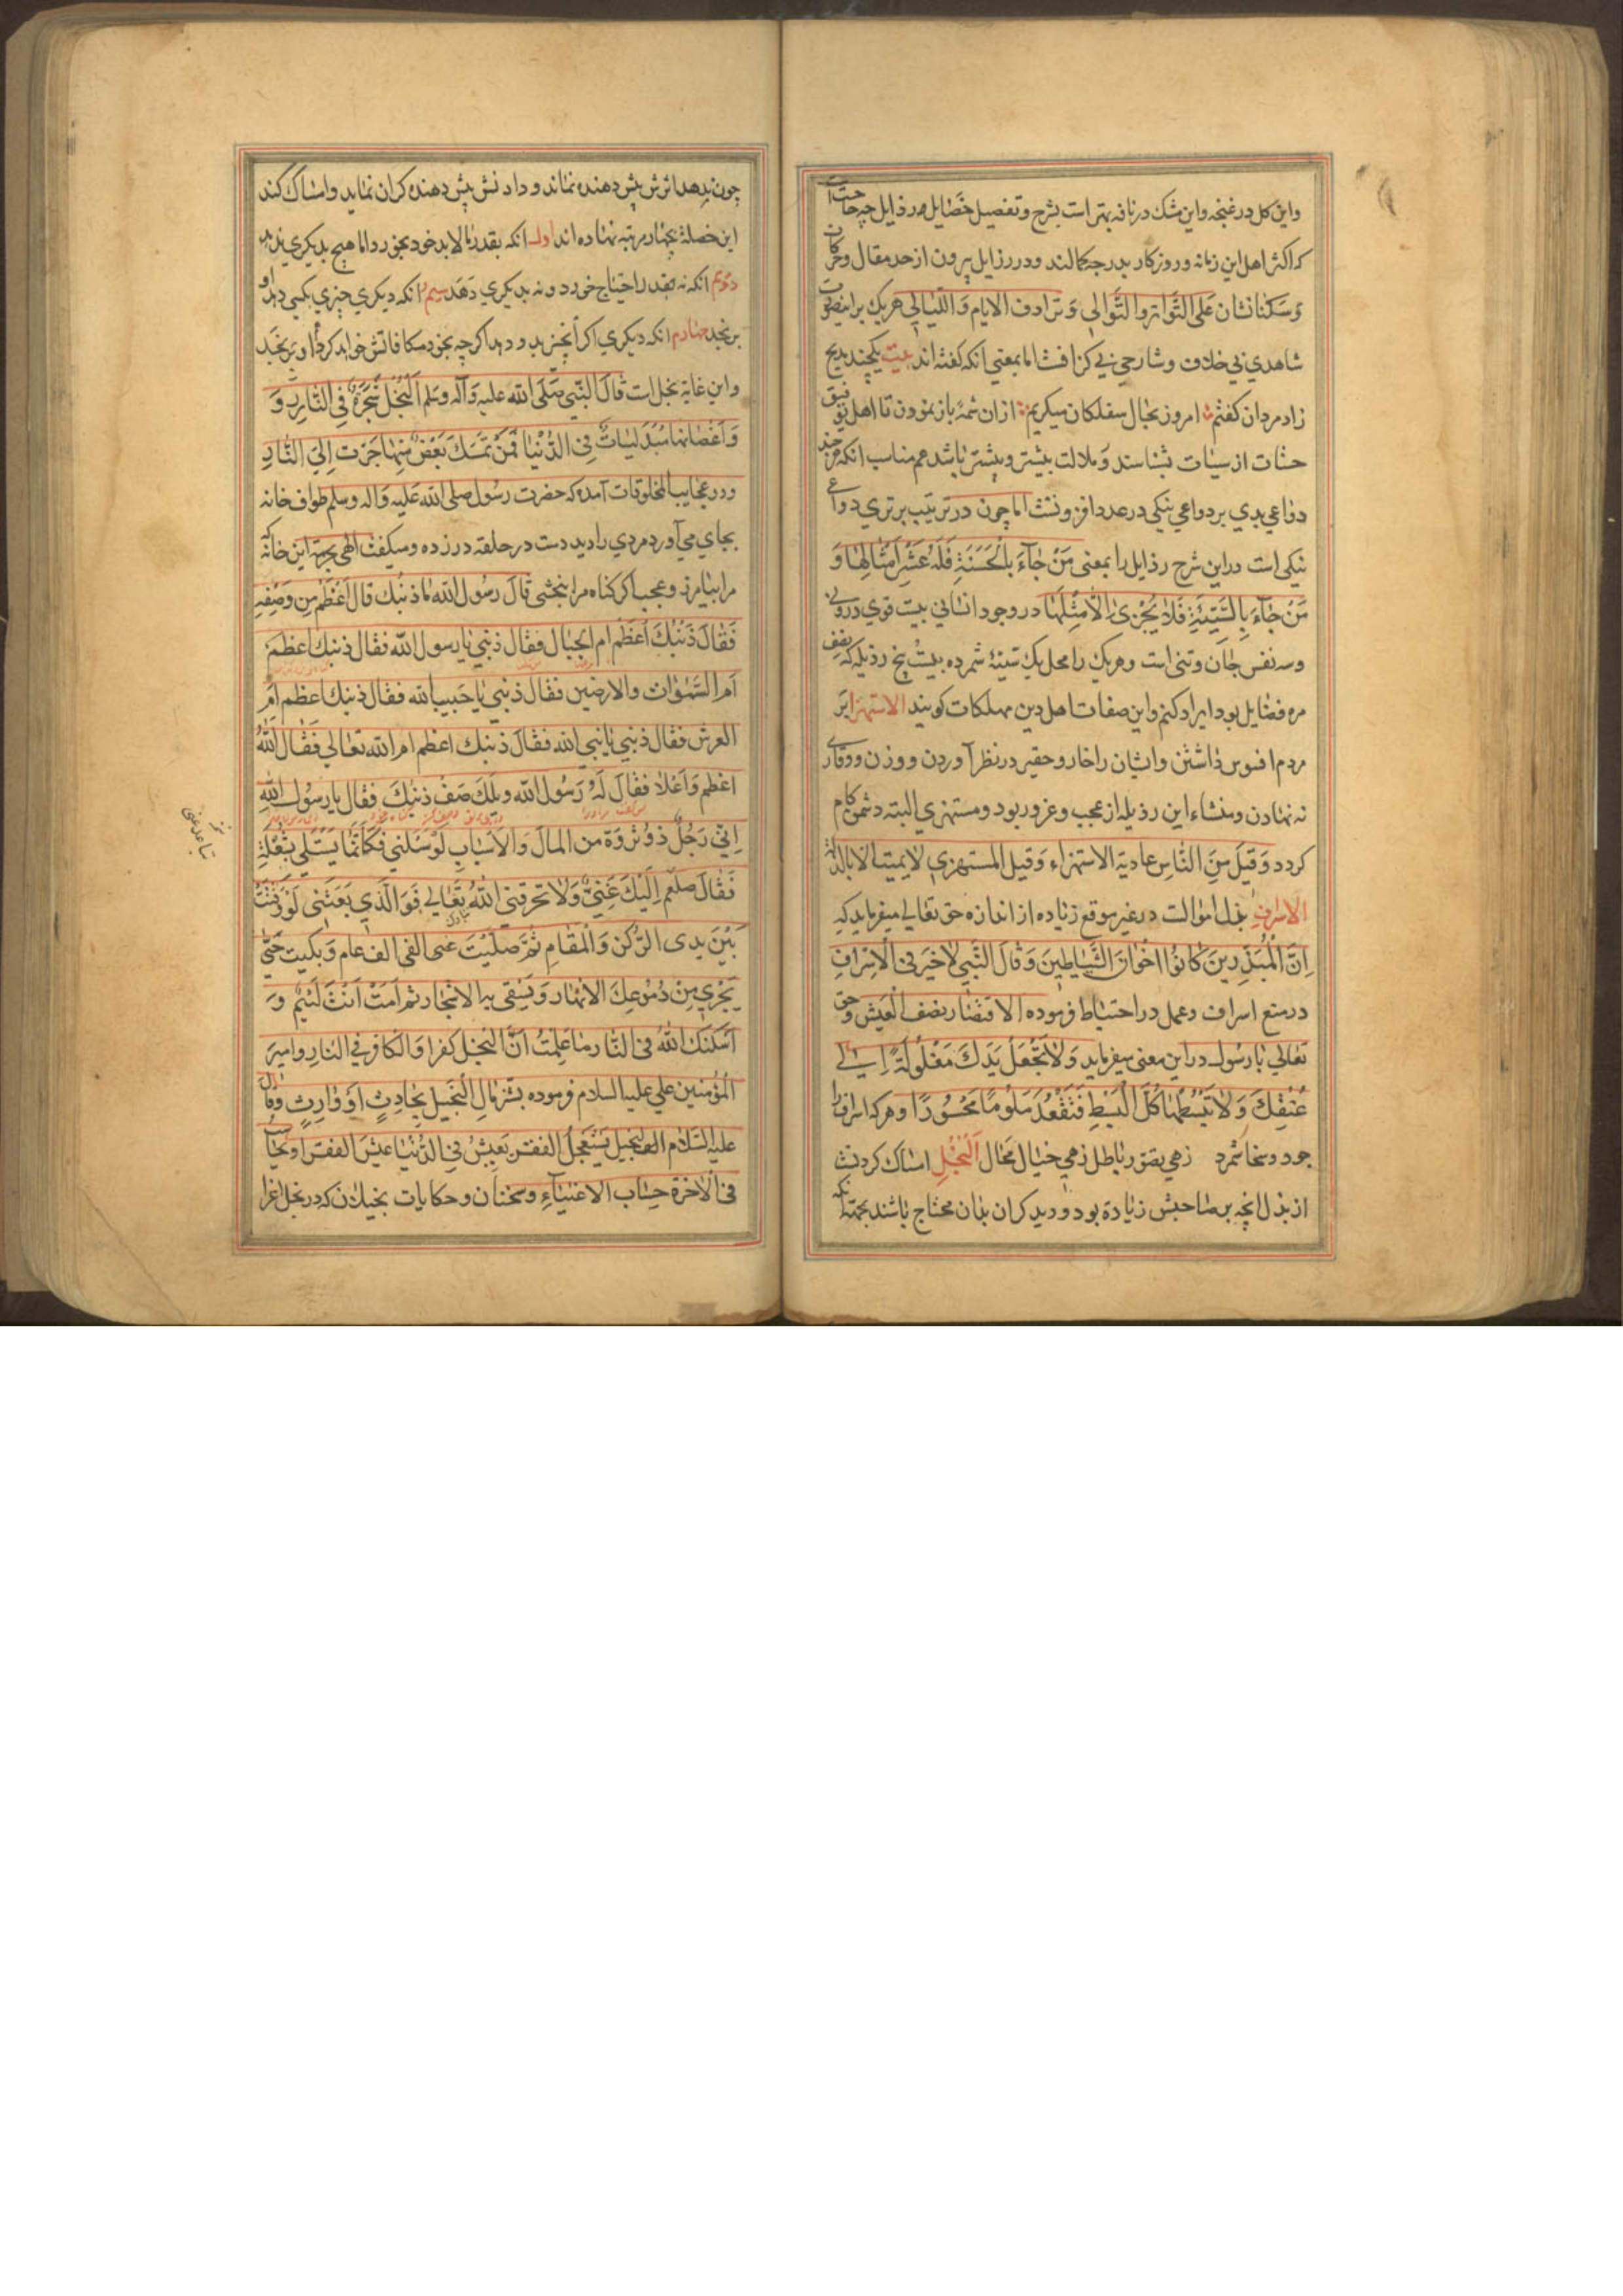 واین کل در غنچه واین مشک در نافه بهتر است بشرح وتفصیل خصایل ورذایل چه حاجت
که اکثر اهل این زمانه وروزکار بدرجه کمالند ودر رزایل بیرون از حد مقال وحرکات
وسکناتشان عَلَی التَّواتر والتَّوالی وَتَرادف الایام وَاللَّیالی هریک براین
شاهدی بی خلاف وشارحی بی کزافست اما بمعنی آنکه کفته اند بیت یکچند بدیح
زاد مردان کفتم امروز بحال سفلکان میکریم ازان شمهٔ باز نمودن تا اهل توفیق
حسنات از سیات بشناسند وملالت بیشتر وبیشتر باشد هم مناسب انکه هرچند
دواعی بدی بر دواعی نیکی در عدد افزونست اما چون در ترتیب برتری دواعی
نیکی است دراین شرح رذایل را بمعنی مَنْ جٰآءَ بِالْحَسَنَةِ فَلَهُ عَشْرُ اَمْثٰالِهٰا وَ
مَنْ جٰآءَ بِالسَّیِّئَةِ فَلاٰ یُجْزیٰ اِلّا مِثْلَهٰا در وجود انسانی بیست قوی درونی
وسه نفس جان وتنی است وهریک را محل یک سیئهٔ شمرده بیست پنج رذیله که نصف
مره فضایل بود ایراد کنم واین صفات اهل دین مهلکات کویند الاستهزا بر
مردم افسوس داشتن وایشان را خار وحقیر در نظر آوردن ووزن ووقار
نه نهادن ومنشاء این رذیله از عجب وغرور بود ومستهزی البته دشمن کام
کردد وَقیلَ مِنَ النّاسِ عادیة الاستهزاء وَقیل المستهزی لایمیت الا بالذلة
الاسراف بذل اموالست در غیر موقع زیاده از اندازه حق تعالی میفرماید که
اِنَّ الْمُبَذِّرینَ کٰانُوا اخْوٰانَ الشَّیٰاطینَ وَقالَ النَّبی لاٰخَیرَ فی الْاِسْرافِ
در منع اسراف وعمل در احتیاط فرموده الاقتصاد نصف الْعَیش وحق
تعالی با رسول دراین معنی میفرماید وَلاٰتَجْعَلْ یَدَكَ مَغْلُولَةً اِلی
عُنُقِكَ وَلاٰ تَبْسُطْهٰا كُلَّ الْبَسْطِ فَتَقْعُدَ مَلُومًا مَحْسُورًا وهرکه اسراف را
جود وسخا شمرد زهی تصور باطل زهی خیال محال اَلْبُخْلِ امساک کردنست
از بذل انچه بر صاحبش زیادة بود ودیدکران بدان محتاج باشند بجهة انکه
چون بدهد اثرش پیش دهنده نماند ودادنش پیش دهنده کران نماید وامساک کند
این خصلة بچهار مرتبه نهاده اند اول انکه بقدر مالابد خود بخورد اما هیچ بدیکری ندهد
دویم انکه نه بقدر احتیاج خورد ونه بدیکری دهد سیم انکه دیکری چیزی بکسی دهد او
برنجد چهارم انکه دیکری اکر انچیز بدو دهد اکرچه بخود مکافاتش خواهد کرد او برنجد
واین غایة بخل است قالَ النَّبی صَلَی الله علیه وَآله وسلم اَلْبُخْلُ شَجَرَةٌ فِی النّارِ وَ
وَاَغْصٰانها مُتَدَلّیات فِی الدُّنْیا فَمَنْ تَمَسَّكَ بَعْض مِنْها جَرَت اِلیَ النّٰارِ
ودر عجایب المخلوقات آمده که حضرت رسول صلی الله علیه واله وسلم طواف خانه
بجای می آورد مردی را دید دست در حلقه در زده ومیکفت الهی بحرمة این خانه که
مرا بیامرز وعجب اکر کناه مرا بخشی قالَ رسُول الله ما ذنبك قال اَعْظَمُ مِن وَصْفِه
فَقٰالَ ذَنْبُكَ اَعْظَم ام الجبال فقال ذنبی یا رسول الله فقال ذنبك اعظم
اَم السَّمٰوات والارضین فقال ذنبی یا حَبیب الله فقال ذنبك اعظم ام
العرش فقال ذنبی یا نبی الله فقال ذنبك اعظم ام الله تعالی فقال الله
اعظم وَاَعْلا فقال لَهُ رَسُول الله ویلك صف ذنبك فقال یا رسُول الله
اِنّی رَجُلٌ ذوُ ثروَة من المال وَالاَسْبابِ لَوْ سَئلنی فکَاَنَّما
فَقٰالَ صلعم اِلَیْكَ عَنّی وَلا تحرقنی الله تعالی فَوَ الَّذی بَعَثَنی لَوْ
بَیْنَ یدی الرُّکن وَالْمَقام ثُمَّ صلَّیْتَ الفی الف عام وَبکیت حَتّی
یَجْری مِنْ دُمُوعِكَ الانهار وَتَسْقی به الاشجار ثم اَمَتْ اَنْتَ لَئیم وَ
اَسْکنك الله فی النّار ما عَلِمْتَ اَنَّ البخل کفر وَالکافر فی النار وامیر
الْمؤمنین علی علیه السلام فرموده بَشّر مال الْبَخیل بِحادِثٍ اَوْ وٰارِثٍ وقال
علیه السَّلام البخیل یَسْتَعجِلُ الفقر یَعیشُ فی الدُّنْیا عَیْشَ الفقرا ویحاسب
فی الْاخرة حِسٰاب الاغنیآءِ وسخنان وحکایات بخیلان که در بخل اغرا
تباعد عنی